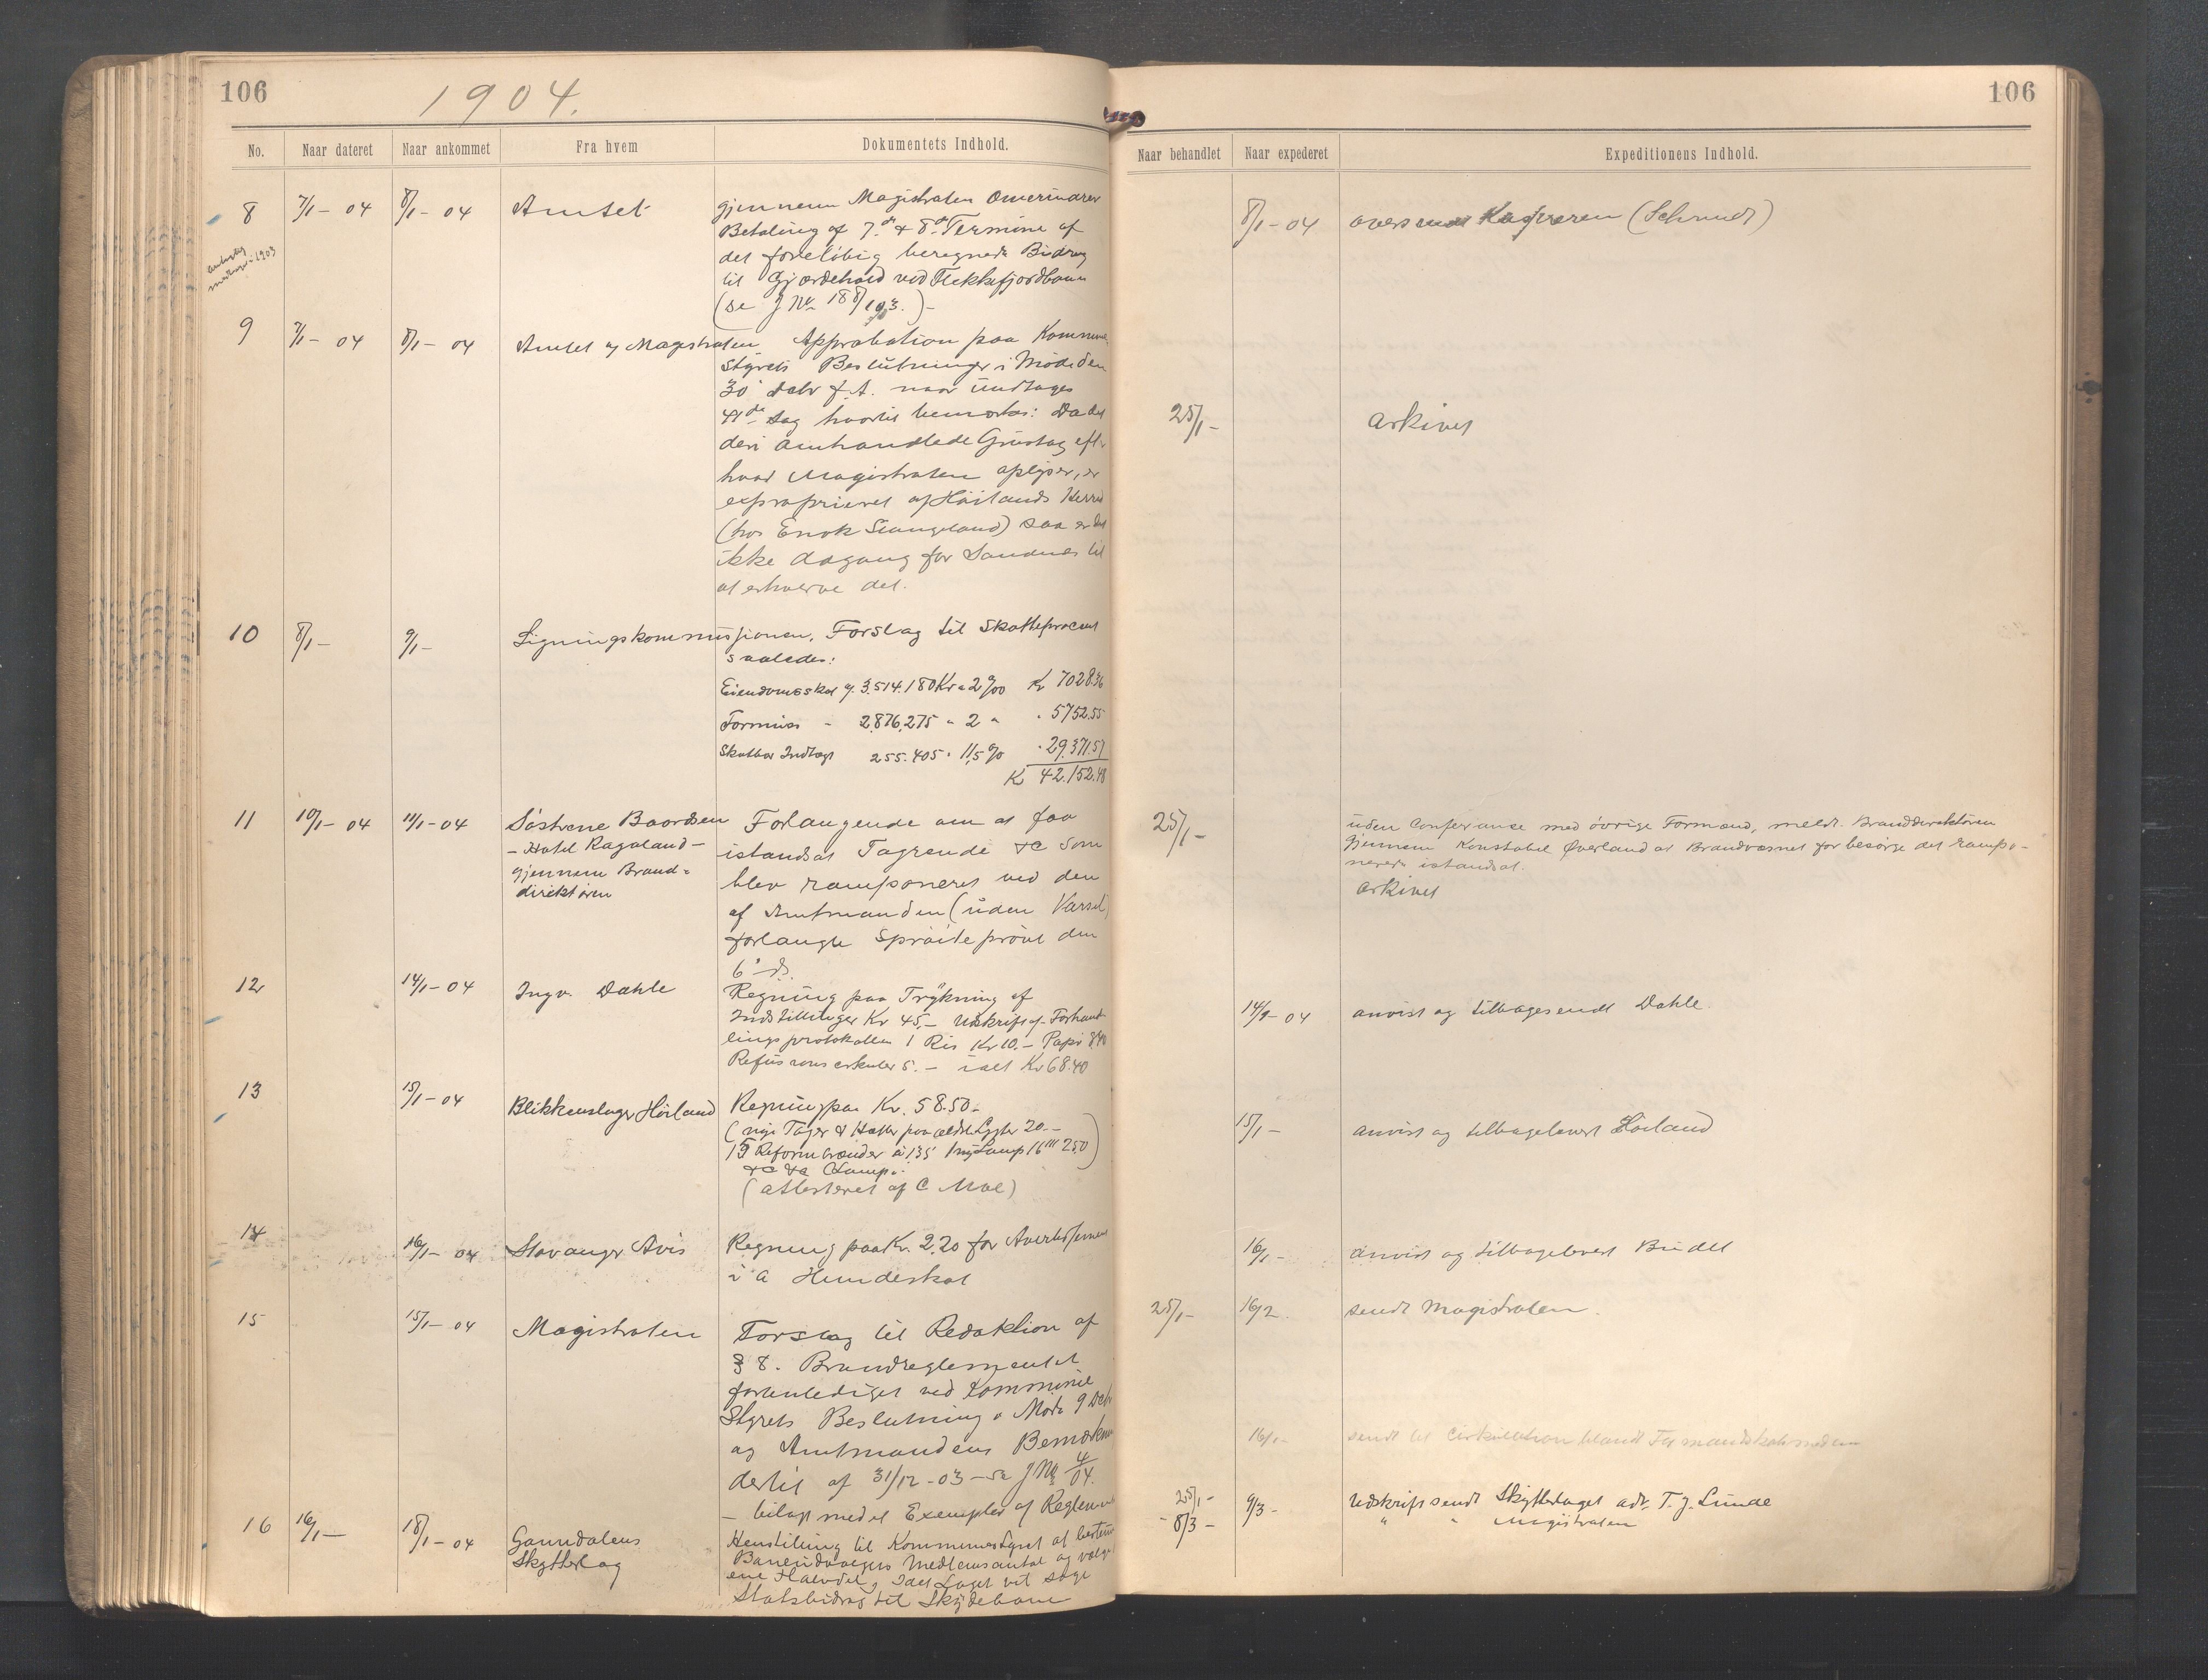 106
1904.
No.
Naar dateret
Naar ankommet
Fra hvem
Dokumentets Indhold.
8
7/1 - 04
8/1 - 04
Amtet
gjennem Magistraten Omerindrer
Betaling af 7de & 8de Termine af
det foreløbig beregnede Bidrag
til Gjærdehold ved Flekkefjordbanen
(se J No 188/1903.) -
9
7/1 - 04
8/1 - 04
Amtet og Magistraten
Approbation paa Kommune
Styrets Beslutninger i Møde den
30' Debr f.A. naar undtages
41de Sag hvortil bemærkes: Da det
deri omhandlede Grustag eft.
hvad Magistraten oplyser, er
exproprieret af Høilands Herred
(hos Enok Stangeland) saa er det
ikke Adgang for Sandnes til
at erhverve det.
10
8/1 -
9/1 -
Ligningskommissionen,
Forslag til Skatteprocent
saaledes:
Eiendomsskat af 3.514.180 Kr a 2 0/00 Kr 7028.36
Formues - 2,876,275 " 2 " " 5752.55
Skatbar Indtægt 255.405 " 11,5 % " 29,371.57
Kr 42.152.48
11
10/1 - 04
11/1 - 04
Søstrene Baardsen
- Hotel Rogaland -
gjennem Brand-
direktøren
Forlangende om at faa
istandsat Tagrende &c som
blev ramponeret ved den
af Amtmanden (uden Varsel)
forlangte Sprøiteprøve den
6' ds.
12
14/1 - 04
Ingv. Dahle
Regning paa Trykning af
Indstillinger Kr 45,- Udskrift af Forhand-
lingsprotokollen 1 Ris Kr 10.- Papir 8.40
Refusionscirkulær 5.- ialt Kr 68.40
13
15/1 - 04
Blikkenslager Høiland
Regning paa Kr. 58.50.-
(nye Tager & Hætter paa ældste Lygter 20.-
15 Reformbrænder à 1.35 1 ny Lamp 16''' 2.50)
&c &c
(attesteret af C. Moe)
14
16/1 - 04
Stavanger Avis
Regning paa Kr. 2.20 for Avertissement
i A Hundeskat
15
15/1 - 04
Magistraten
Forslag til Redaktion af
§ 8. Brandreglementet
foranlediget ved Kommune
Styrets Beslutning i Møde 9 Debr
og Amtmandens Bemærkn
dertil af 31/12 - 03 - se J No 4/04.
- bilagt med et Exemplar af Reglem
16
16/1 -
18/1 - 04
Ganndalens
Skytterlag
Henstilling til Kommunestyret at bestem
Baneudvalgets Medlemsantal og vælge
ene Halvdel, idet Laget vil søge
Statsbidrag til Skydebane
106
Naar behandlet
Naar expederet
Expeditionens Indhold.
8/1 - 04
oversendt Kasseren (Schmidt)
25/1 -
Arkivet
25/1 -
uden Conferanse med øvrige Formænd, meldt Branddirektøren
gjennem Konstabel Øverland at Brandvæsnet faar besørge det rampo-
nerede istandsat.
Arkivet
14/1 - 04
anvist og tilbagesendt Dahle.
15/1 -
anvist og tilbageleveret Høiland
16/1 -
anvist og tilbageleveret Budet
25/1 -
16/2.
sendt Magistraten.
16/1 -
sendt til Cirkulation blandt Formandskabsmedlem
25/1 -
- 8/3 -
9/3 -
Udskrift sendt Skytterlaget adr. T. J. Lunde
" " Magistraten